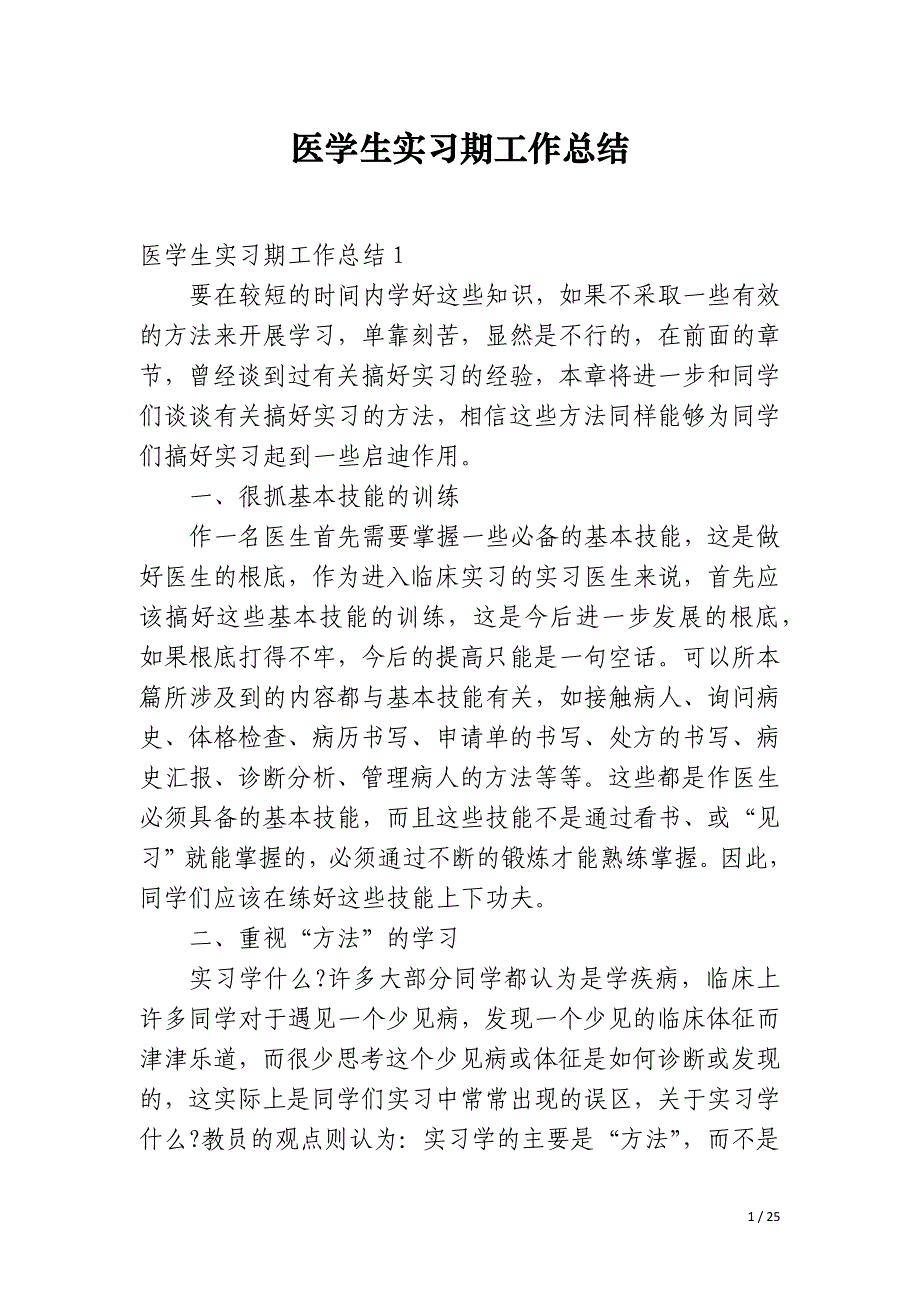 医学生实习期工作总结
医学生实习期工作总结1
要在较短的时间内学好这些知识，如果不采取一些有效
的方法来开展学习，单靠刻苦，显然是不行的，在前面的章
节，曾经谈到过有关搞好实习的经验，本章将进一步和同学
们谈谈有关搞好实习的方法，相信这些方法同样能够为同学
们搞好实习起到一些启迪作用。
一、很抓基本技能的训练
作一名医生首先需要掌握一些必备的基本技能，这是做
好医生的根底，作为进入临床实习的实习医生来说，首先应
该搞好这些基本技能的训练，这是今后进一步发展的根底，
如果根底打得不牢，今后的提高只能是一句空话。可以所本
篇所涉及到的内容都与基本技能有关，如接触病人、询问病
史、体格检查、病历书写、申请单的书写、处方的书写、病
史汇报、诊断分析、管理病人的方法等等。这些都是作医生
必须具备的基本技能，而且这些技能不是通过看书、或“见
习”就能掌握的，必须通过不断的锻炼才能熟练掌握。因此，
同学们应该在练好这些技能上下功夫。
二、重视“方法”的学习
实习学什么?许多大部分同学都认为是学疾病，临床上
许多同学对于遇见一个少见病，发现一个少见的临床体征而
津津乐道，而很少思考这个少见病或体征是如何诊断或发现
的，这实际上是同学们实习中常常出现的误区，关于实习学
什么?教员的观点则认为：实习学的主要是“方法”，而不是
1 / 25